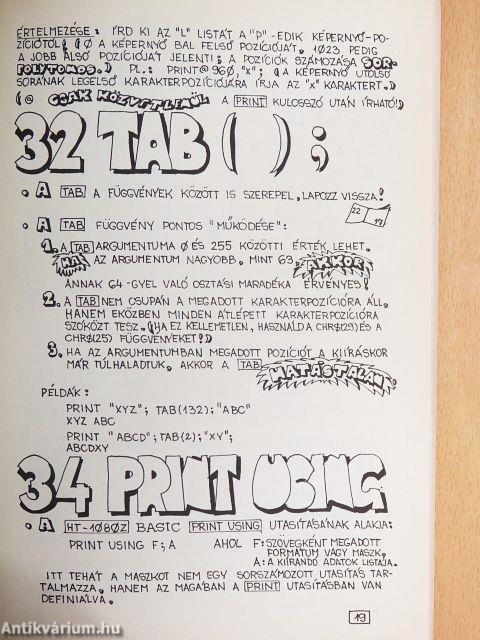 ÉRTELMEZÉSE: ÍRD KI AZ "L" LISTÁT A "P" -EDIK KÉPERNYŐ-PO-
ZÍCIÓTÓL! (0 A KÉPERNYŐ BAL FELSŐ POZÍCIÓJÁT, 1023 PEDIG
A JOBB ALSÓ POZÍCIÓJÁT JELENTI; A POZÍCIÓK SZÁMOZÁSA SOR-
FOLYTONOS.) PL.: PRINT@960,"X"; (A KÉPERNYŐ UTOLSÓ
SORÁNAK LEGELSŐ KARAKTERPOZÍCIÓJÁRA ÍRJA AZ "X" KARAKTERT.)
(@ CSAK KÖZVETLENÜL A PRINT KULCSSZÓ UTÁN ÍRHATÓ!)
32 TAB( );
• A TAB A FÜGGVÉNYEK KÖZÖTT IS SZEREPEL, LAPOZZ VISSZA!
22 17
• A TAB FÜGGVÉNY PONTOS "MŰKÖDÉSE":
1. A TAB ARGUMENTUMA 0 ÉS 255 KÖZÖTTI ÉRTÉK LEHET.
HA AZ ARGUMENTUM NAGYOBB, MINT 63, AKKOR
ANNAK 64-GYEL VALÓ OSZTÁSI MARADÉKA ÉRVÉNYES!
2. A TAB NEM CSUPÁN A MEGADOTT KARAKTERPOZÍCIÓRA ÁLL,
HANEM EKÖZBEN MINDEN ÁTLÉPETT KARAKTERPOZÍCIÓRA
SZÓKÖZT TESZ. (HA EZ KELLEMETLEN, HASZNÁLD A CHR$(29) ÉS A
CHR$(25) FÜGGVÉNYEKET!)
3. HA AZ ARGUMENTUMBAN MEGADOTT POZÍCIÓT A KIÍRÁSKOR
MÁR TÚLHALADTUK, AKKOR A TAB HATÁSTALAN!
PÉLDÁK:
PRINT "XYZ"; TAB(132);"ABC"
XYZ ABC
PRINT "ABCD"; TAB(2);"XY";
ABCDXY
34 PRINT USING
• A HT-1080Z BASIC PRINT USING UTASÍTÁSÁNAK ALAKJA:
PRINT USING F; A AHOL F: SZÖVEGKÉNT MEGADOTT
FORMÁTUM VAGY MASZK,
A: A KIÍRANDÓ ADATOK LISTÁJA.
ITT TEHÁT A MASZKOT NEM EGY SORSZÁMOZOTT UTASÍTÁS TAR-
TALMAZZA, HANEM AZ MAGÁBAN A PRINT UTASÍTÁSBAN VAN
DEFINIÁLVA.
19
Antikvárium.hu